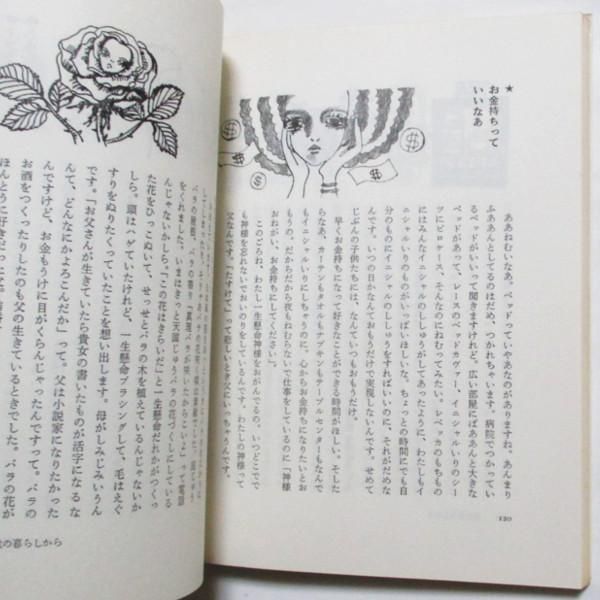 ★
お金持ちって
いいなあ
ああねむいなあ。ベッドっていやあなのがありますね。あんまり
ふああんとしてるのはだめ、つかれちゃいます。病院でつかってい
るベッドがいいって聞きますけれど、広い部屋にばああんと大きな
ベッドがあって、レースのベッドカヴァー、イニシャルいりのシー
ツにピロケース、そんなのにねむってみたい。レベッカのもちもの
にはみんなイニシャルのししゅうがしてあったように、わたしもイ
ニシャルいりのものがいっぱいほしいな。ちょっとの時間にでも自
分のものにイニシャルのししゅうをすればいいのに、それがだめな
んです。いつの日かなんておもうだけで実現しないんです。せめて
じぶんの子供たちには、なんていつもおもうだけ。
早くお金持ちになって好きなことができる時間がほしい。そした
らなあ、カーテンもタオルもナプキンもテーブルセンターもなんで
もイニシャルいりにしちゃうのに。心からお金持ちになりたいとお
もうの、だからだから夜もねむらないで仕事をしているのに「神様
おねがい、お金持ちにしてください」。
このごろね、わたし一生懸命神様をおがんでるの。いつどこでで
も神様を忘れないでおいのりをしているんです。わたしの神様って
父なんです。「たすけて」って悲しいとき父にいっちゃうんです。
120
をくれました。いまはきっと天国じゅうバラの花づくしにしている
んじゃないかしら。"この花はきらいだ"と一生懸命だれかがつくっ
た花をひっこぬいて、せっせとバラの木を植えているんじゃないか
しら。頭はハゲていたけれど、一生懸命ブラシングして、毛はえぐ
すりをぬりたくっていたことを想い出します。母がしみじみいうん
です。「お父さんが生きていたら貴女の書いたものが活字になるな
んて、どんなにかよろこんだか」って。父は小説家になりたかった
んですけど、お金もうけに目がくらんじゃったんですって。バラの
お酒をつくったりしたのも父の生きているときでした。バラの花が
の暮らしから